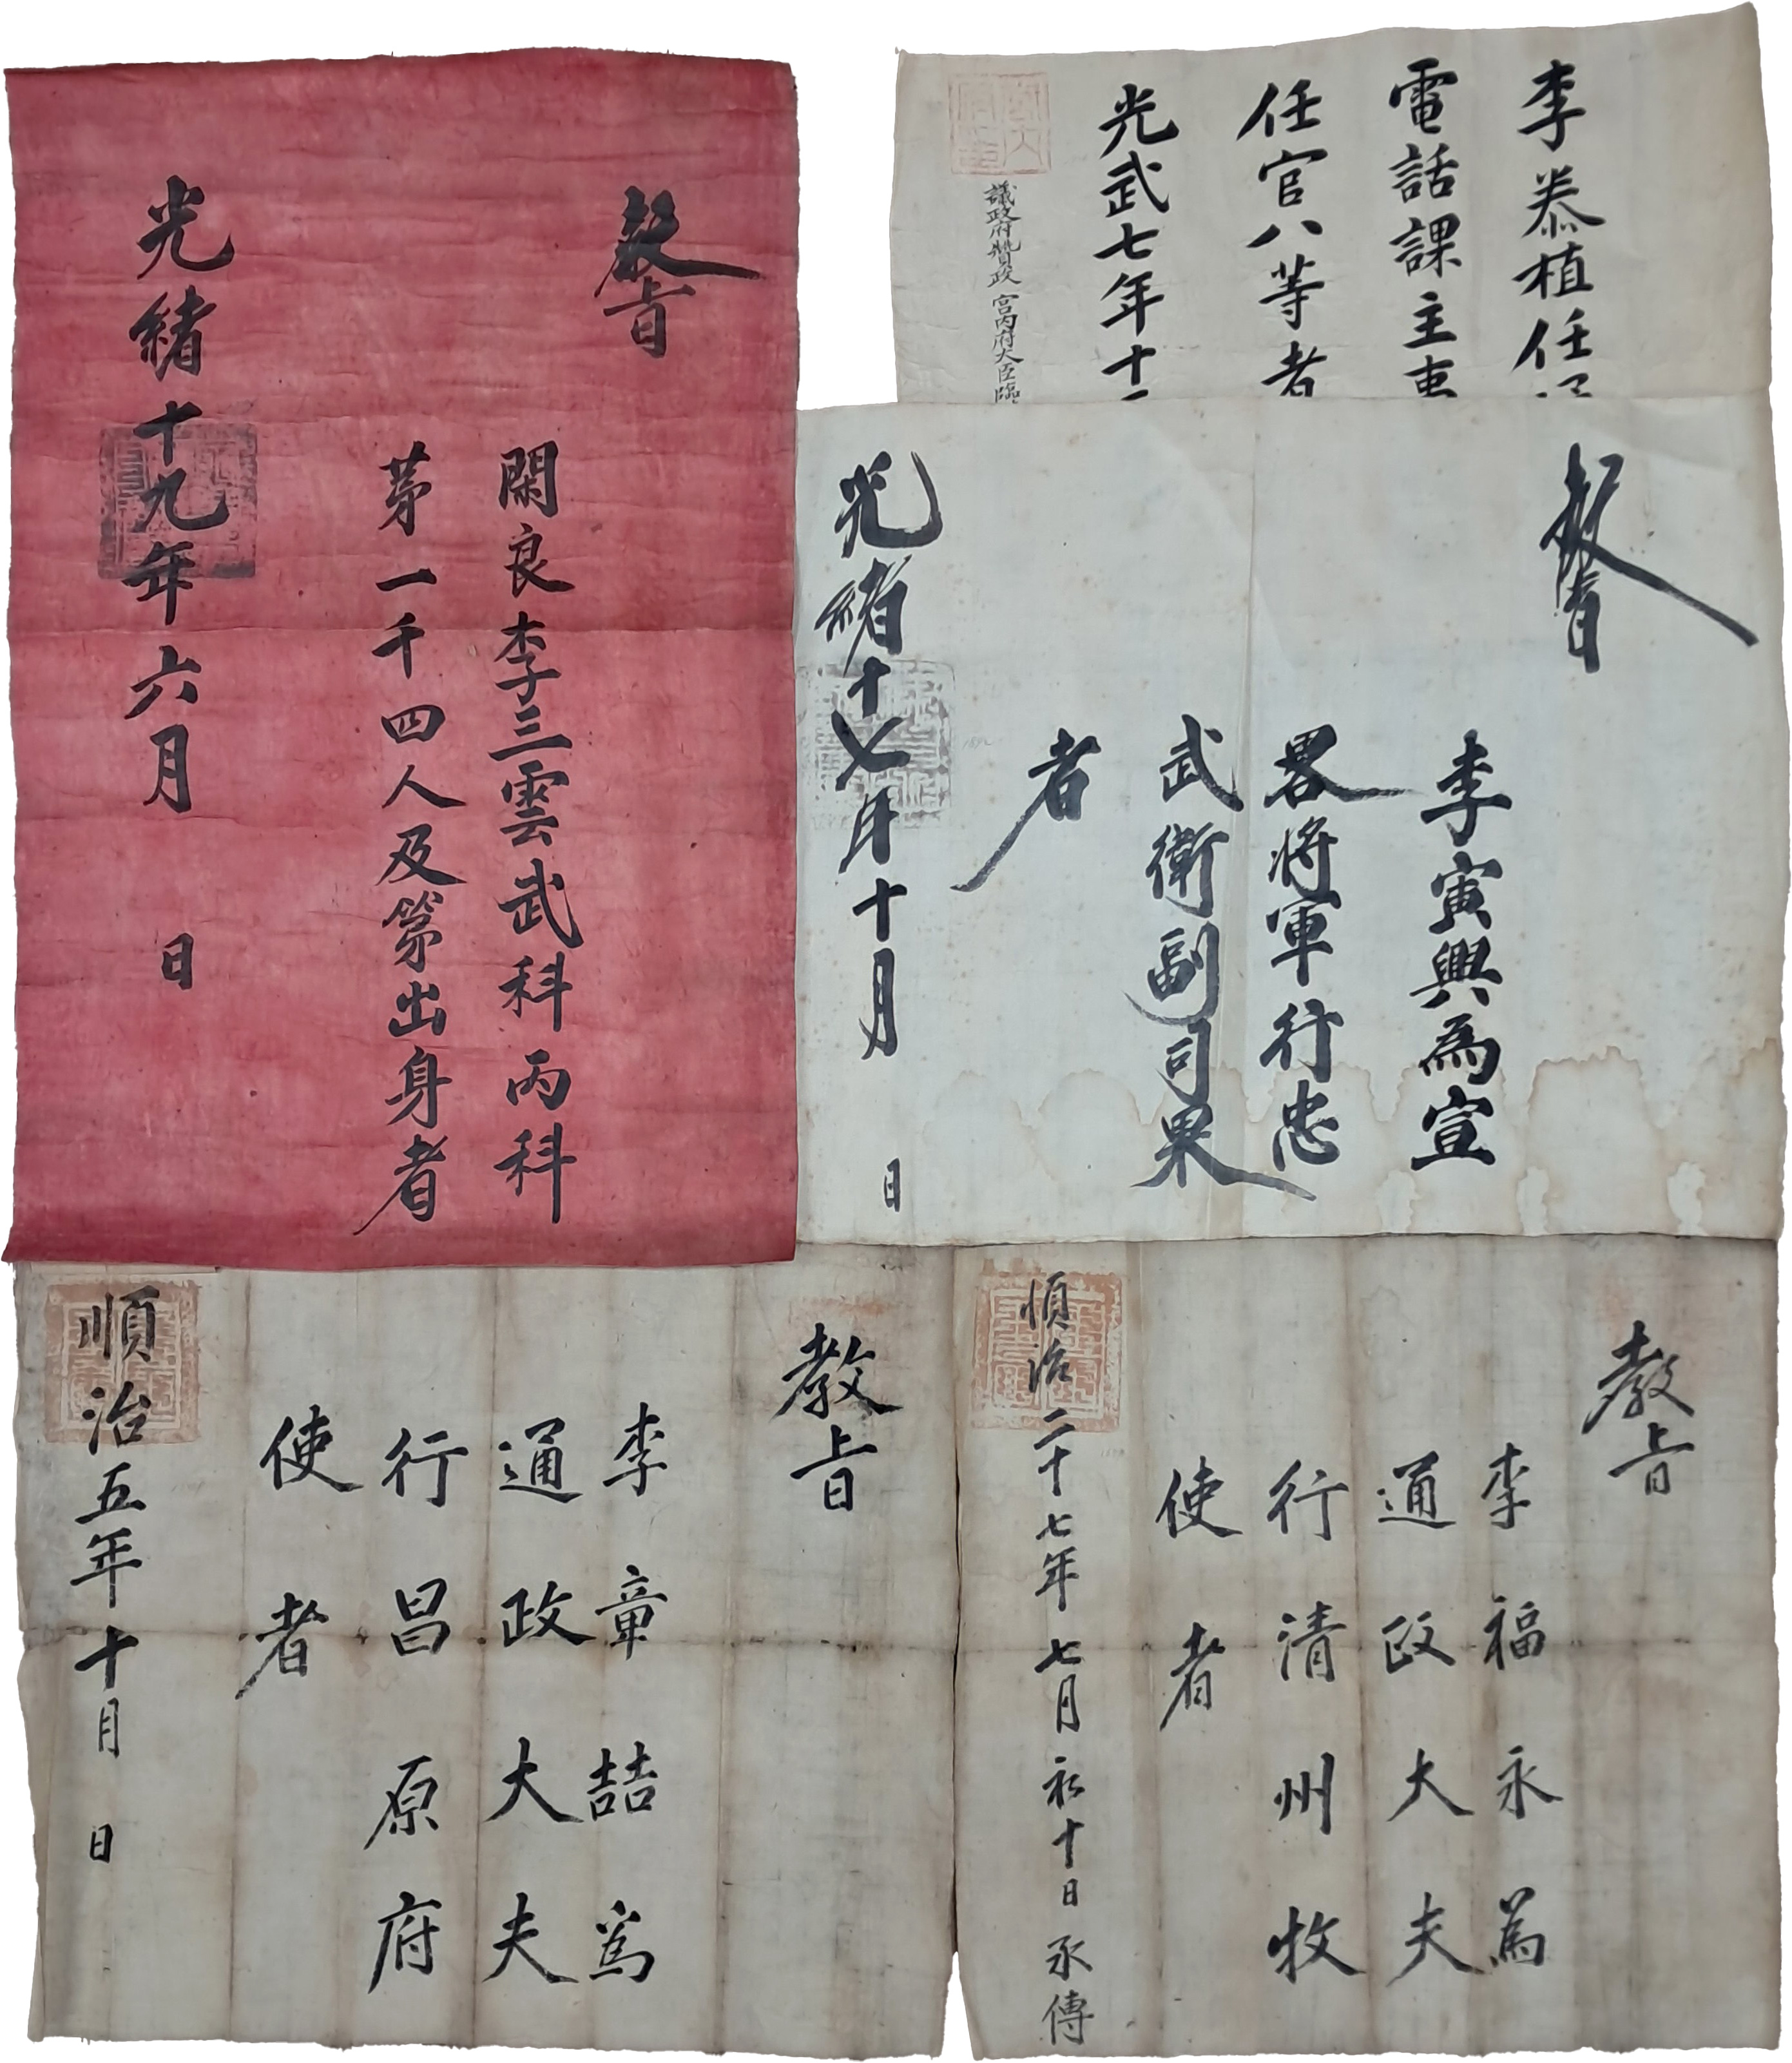 教旨
閑良李三雲武科丙科
茅一千四人及第出身者
光緒十九年六月 日
李泰植任
電話課主事
任官八等者
光武七年十
議政府贊政宮内府大臣臨
教旨
李寅興為宣
畧將軍行忠
武衛副司果
者
光緒十七年十月 日
教旨
李章喆為
通政大夫
行昌原府
使者
順治五年十月 日
教旨
李福永為
通政大夫
行清州牧
使者
順治二十七年七月初十日承傳